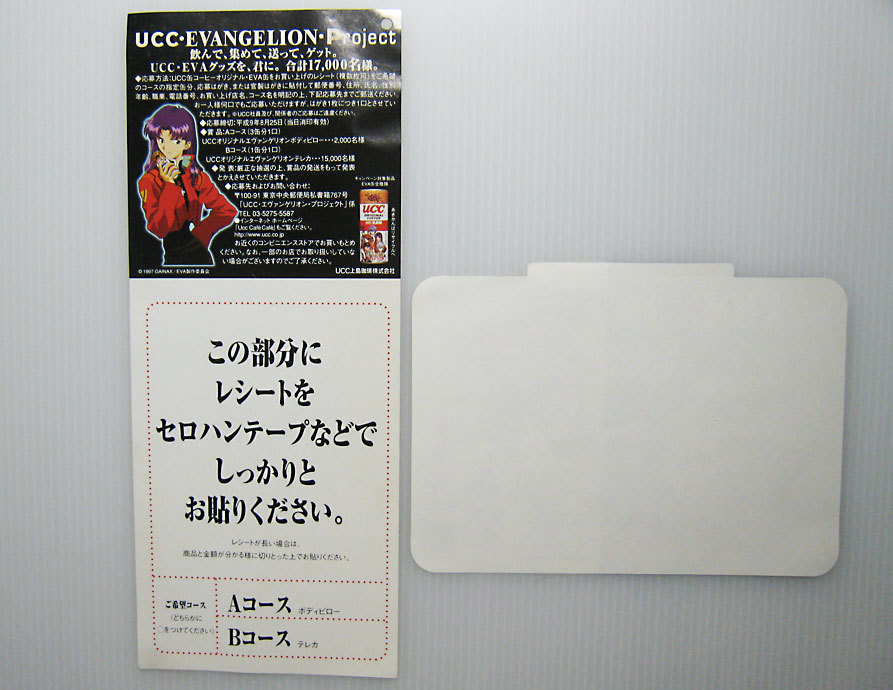 UCC・EVANGELION・Project
飲んで、集めて、送って、ゲット。
UCC・EVAグッズを、君に。合計17,000名様。
◆応募方法:UCC缶コーヒーオリジナル・EVA缶をお買い上げのレシート(複数枚可)をご希望
のコースの指定缶分、応募はがき、または官製はがきに貼付して郵便番号、住所、氏名、性別
年齢、職業、電話番号、お買い上げ店名、コース名を明記の上、下記応募先までご郵送ください
お一人様何口でもご応募いただけますが、はがき1枚につき1口とさせてい
ただきます。※UCC社員及び、関係者のご応募はご遠慮ください。
◆応募締切:平成9年8月25日(当日消印有効)
◆賞 品:Aコース(3缶分1口)
UCCオリジナルエヴァンゲリオンボディピロー・・・2,000名様
Bコース(1缶分1口)
UCCオリジナルエヴァンゲリオンテレカ・・・15,000名様
◆発 表:厳正な抽選の上、賞品の発送をもって発表
とかえさせていただきます。
◆応募先およびお問い合わせ:
〒100-91 東京中央郵便局私書箱767号
「UCC・エヴァンゲリオン・プロジェクト」係
TEL 03-5275-5587
●インターネット ホームページ
「Ucc Cafe Cafe」もご覧ください。
http://www.ucc.co.jp
お近くのコンビニエンスストアでお買いもとめ
ください。なお、一部のお店でお取り扱いしていな
い場合がございますのでご了承ください。
キャンペーン対象製品
EVA缶全種類
UCC
ORIGINAL
COFFEE
あきかんはリサイクルへ
© 1997 GAINAX / EVA製作委員会
UCC上島珈琲株式会社
この部分に
レシートを
セロハンテープなどで
しっかりと
お貼りください。
レシートが長い場合は、
商品と金額が分かる様に切りとった上でお貼りください。
ご希望コース
(どちらかに
○をつけてください)
Aコース ボディピロー
Bコース テレカ